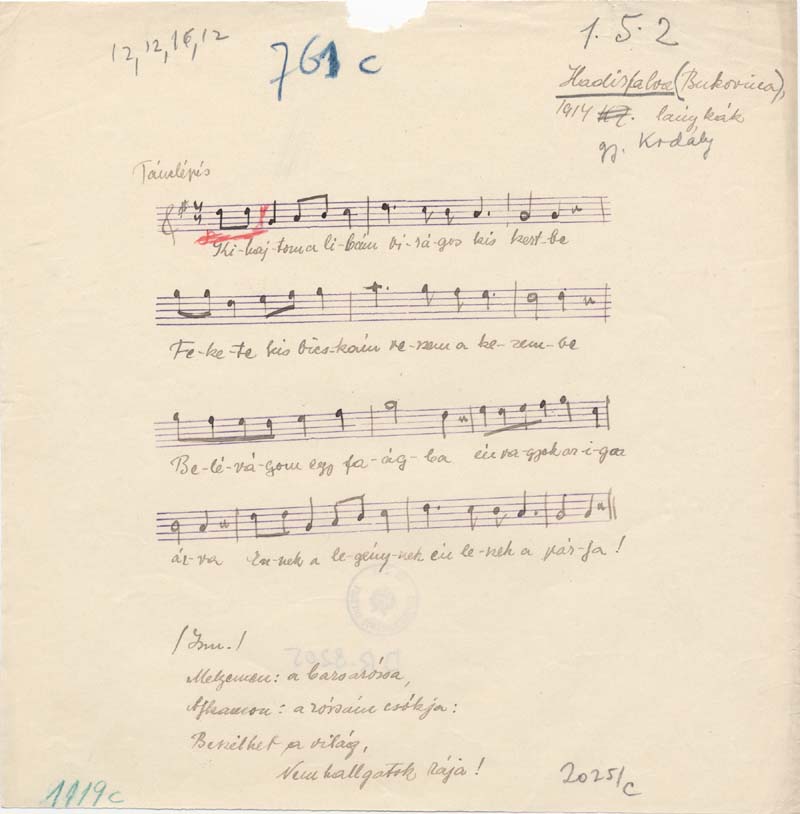 12, 12, 16, 12
761 c
1. 5. 2
Hadisfalva (Bukovina),
1914 lánykák
gy. Kodály
Tánclépés
Ki-haj-tom a li-bám vi-rá-gos kis kert-be
Fe-ke-te kis bics-kám ve-szem a ke-zem-be
Be-lé-vá-gom egy fa-ág-ba én va-gyok az i-gaz
ár-va En-nek a le-gény-nek én le-szek a pár-ja!
/Ism./
Mellyemen: a bazsarózsa,
Ajkamon: a rózsám csókja:
Beszélhet a világ,
Nem hallgatok rája!
1119c
2025/c